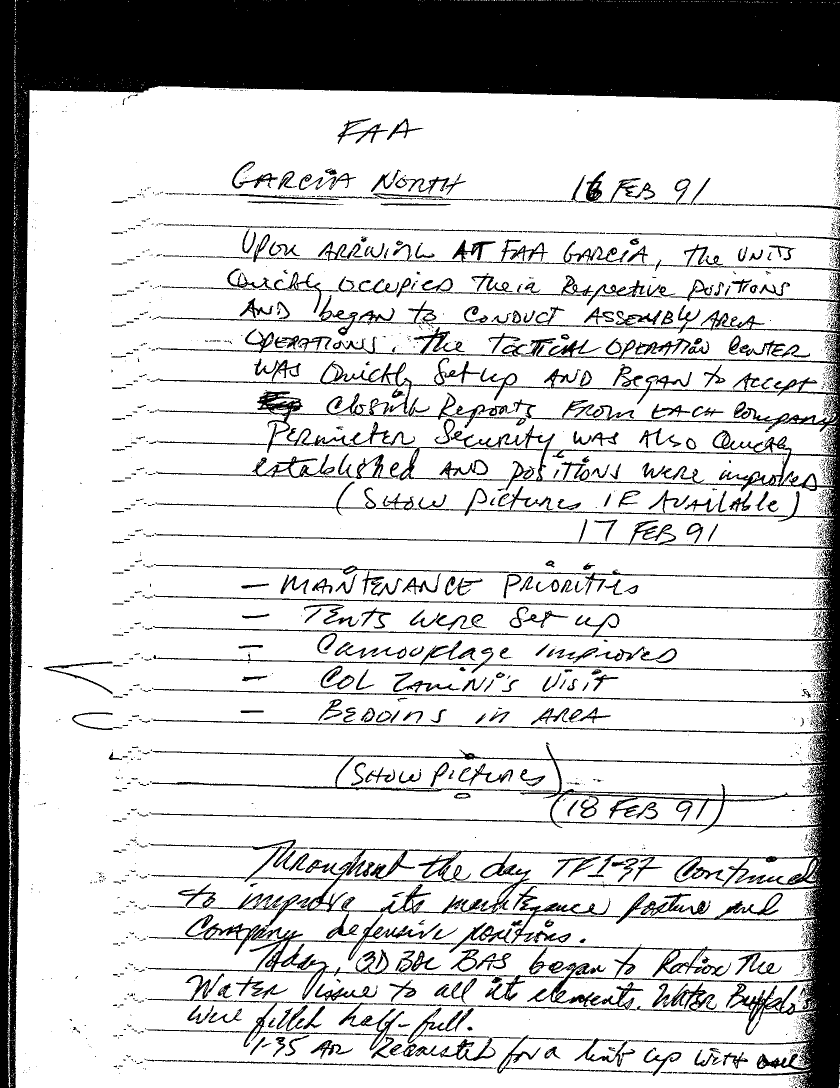 FAA
GARCIA NORTH 16 FEB 91
UPON ARRIVING AT FAA GARCIA, The UNITS
Quickly Occupied Their Respective positions
AND began to CONDUCT ASSEMBLY AREA
OPERATIONS. The TACTICAL OPERATION CENTER
WAS Quickly Set up AND Began to Accept
Closing Reports FROM EACH Company
Perimeter Security WAS Also Quickly
established AND positions were improved
(SHOW Pictures IF AVAILABLE)
17 FEB 91
— MAINTENANCE PRIORITIES
— Tents Were Set up
— Camouflage improved
— COL ZANINI'S VISIT
— BEDOINS in AREA
(SHOW Pictures)
(18 FEB 91)
Throughout the day TF 1-37 Continued
to improve its maintenance posture and
Company defensive positions.
Today, 3D BDE BAS began to Ration The
Water Issue to all its elements. Water Buffalo's
were filled half-full.
1-35 AR Requested for a link up with